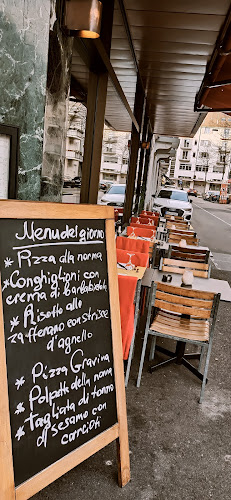 Menu del giorno
* Pizza alla norma
* Conghiglioni con
crema di barbabietola
* Risotto allo
zafferano con strisce
d'agnello
* Pizza Gravina
* Polpette della nonna
* Tagliata di tonno
di sesamo con
carciofi